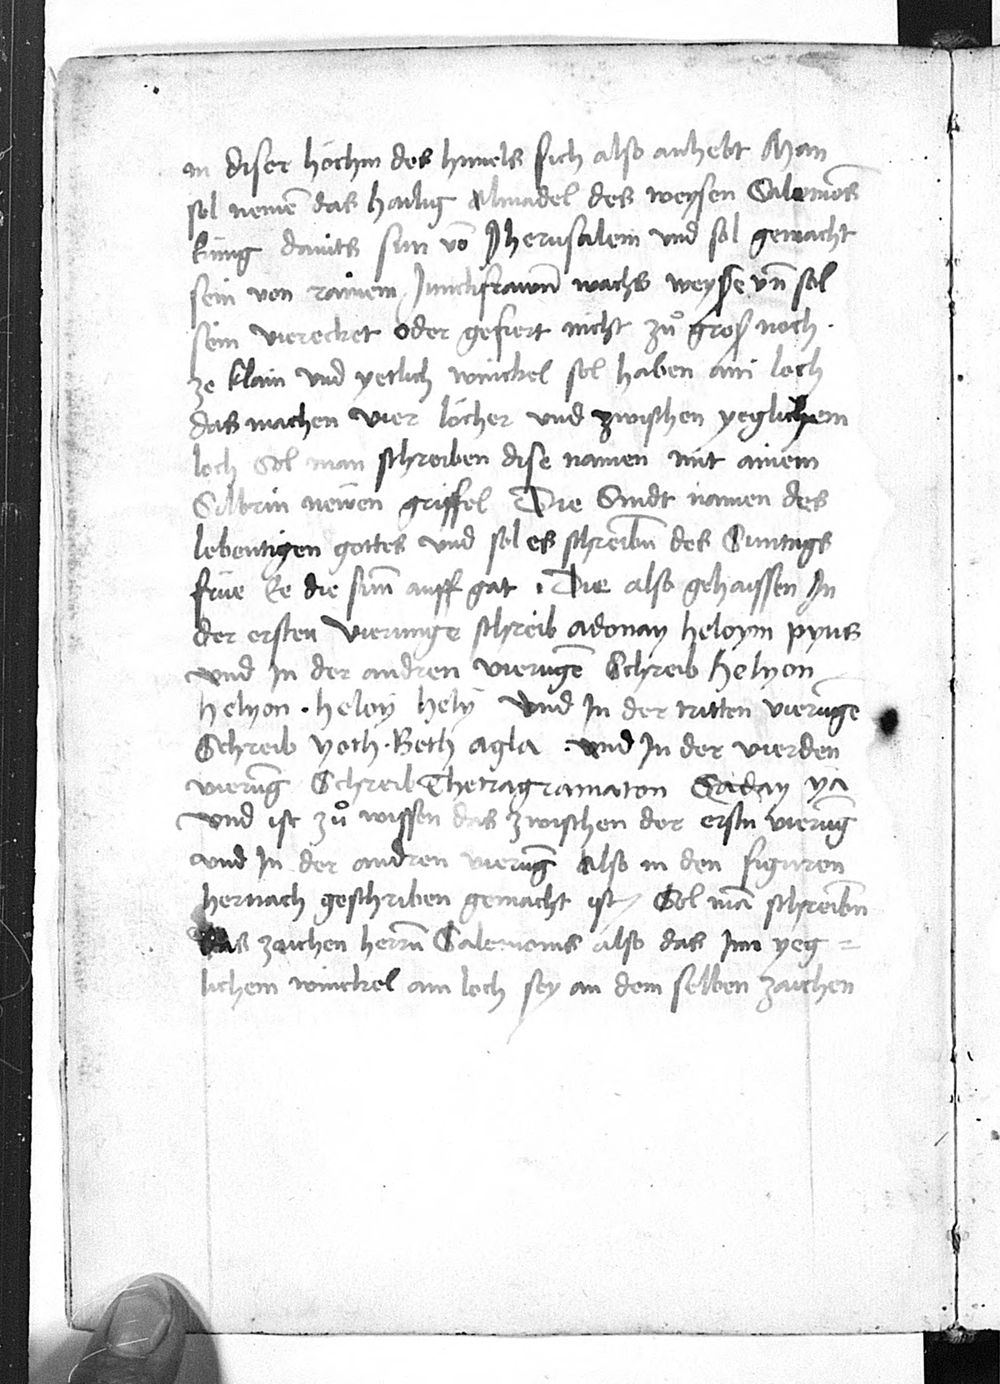 in diser höchin des himels sich also anhebt Man
sol nemē das hailig Almadel des weysen Salamōs
küng dauits sun vō Jherusalem vnd sol gemacht
sein von rainem Junckfrawn̄ wachs weyß vn̄ sol
sein viereckct oder gefiert nicht zů groß noch.
ze klain vnd yetlich winckel sol haben ain loch
das machen vier löcher vnd zwischen yeglichem
loch Sol man schreiben dise namen mit ainem
Silbrin newen griffel Die Sindt namen des
lebentigen gottes vnd sol es schreibn̄ des Suntags
früe Ee die sun̄ auff gat. Die also gehaissen In
der ersten Vierunge schreib adonay heloym pyus
vnd In der andren vierūgē Schreib helyon
helyon. heloy hely vnd In der tritten vierūge
Schreib yoth. Beth agla. vnd In der vierden
vierūg Schreib Thetragramaton Saday yā
vnd ist zů wissen das zwischen der erstn vierūg
vnd In der andren vierūg also in den figuren
hernach geschriben gemacht ist Sol mā schreibn̄
das zaichen herrn̄ Salemons also das Inn yeg=
lichem winckel ain loch sey an dem selben zaichen